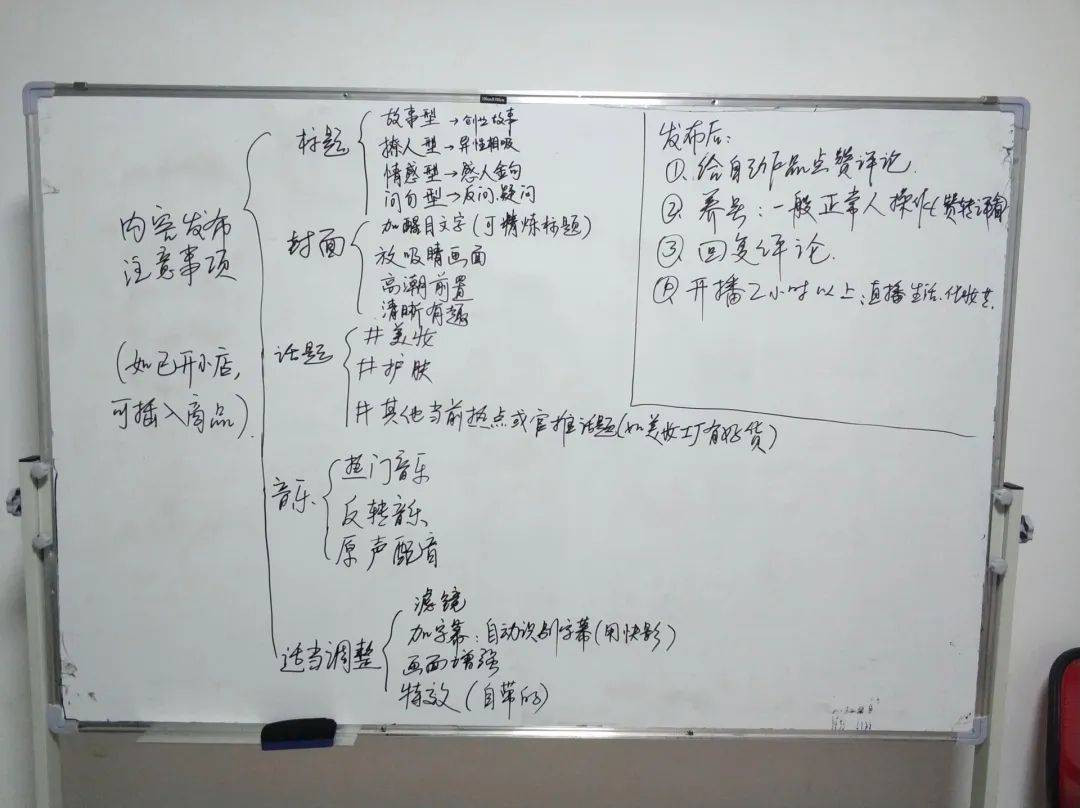 内容发布
注意事项
(如已开小店,
可插入商品).
标题
故事型 → 创业故事
撩人型 → 异性相吸
情感型 → 感人金句
问句型 → 反问.疑问
封面
加醒目文字(可精炼标题)
放吸睛画面
高潮前置
清晰有趣
话题
#美妆
#护肤
#其他当前热点或官推话题(如美妆工厂有好货)
音乐
热门音乐
反转音乐
原声配音
适当调整
滤镜
加字幕:自动识别字幕(用快影)
画面增强
特效(自带的)
发布后:
①.给自动作品点赞评论.
②.养号:一般正常人操作(赞转评
③.回复评论.
④.开播2小时以上:直播生活.